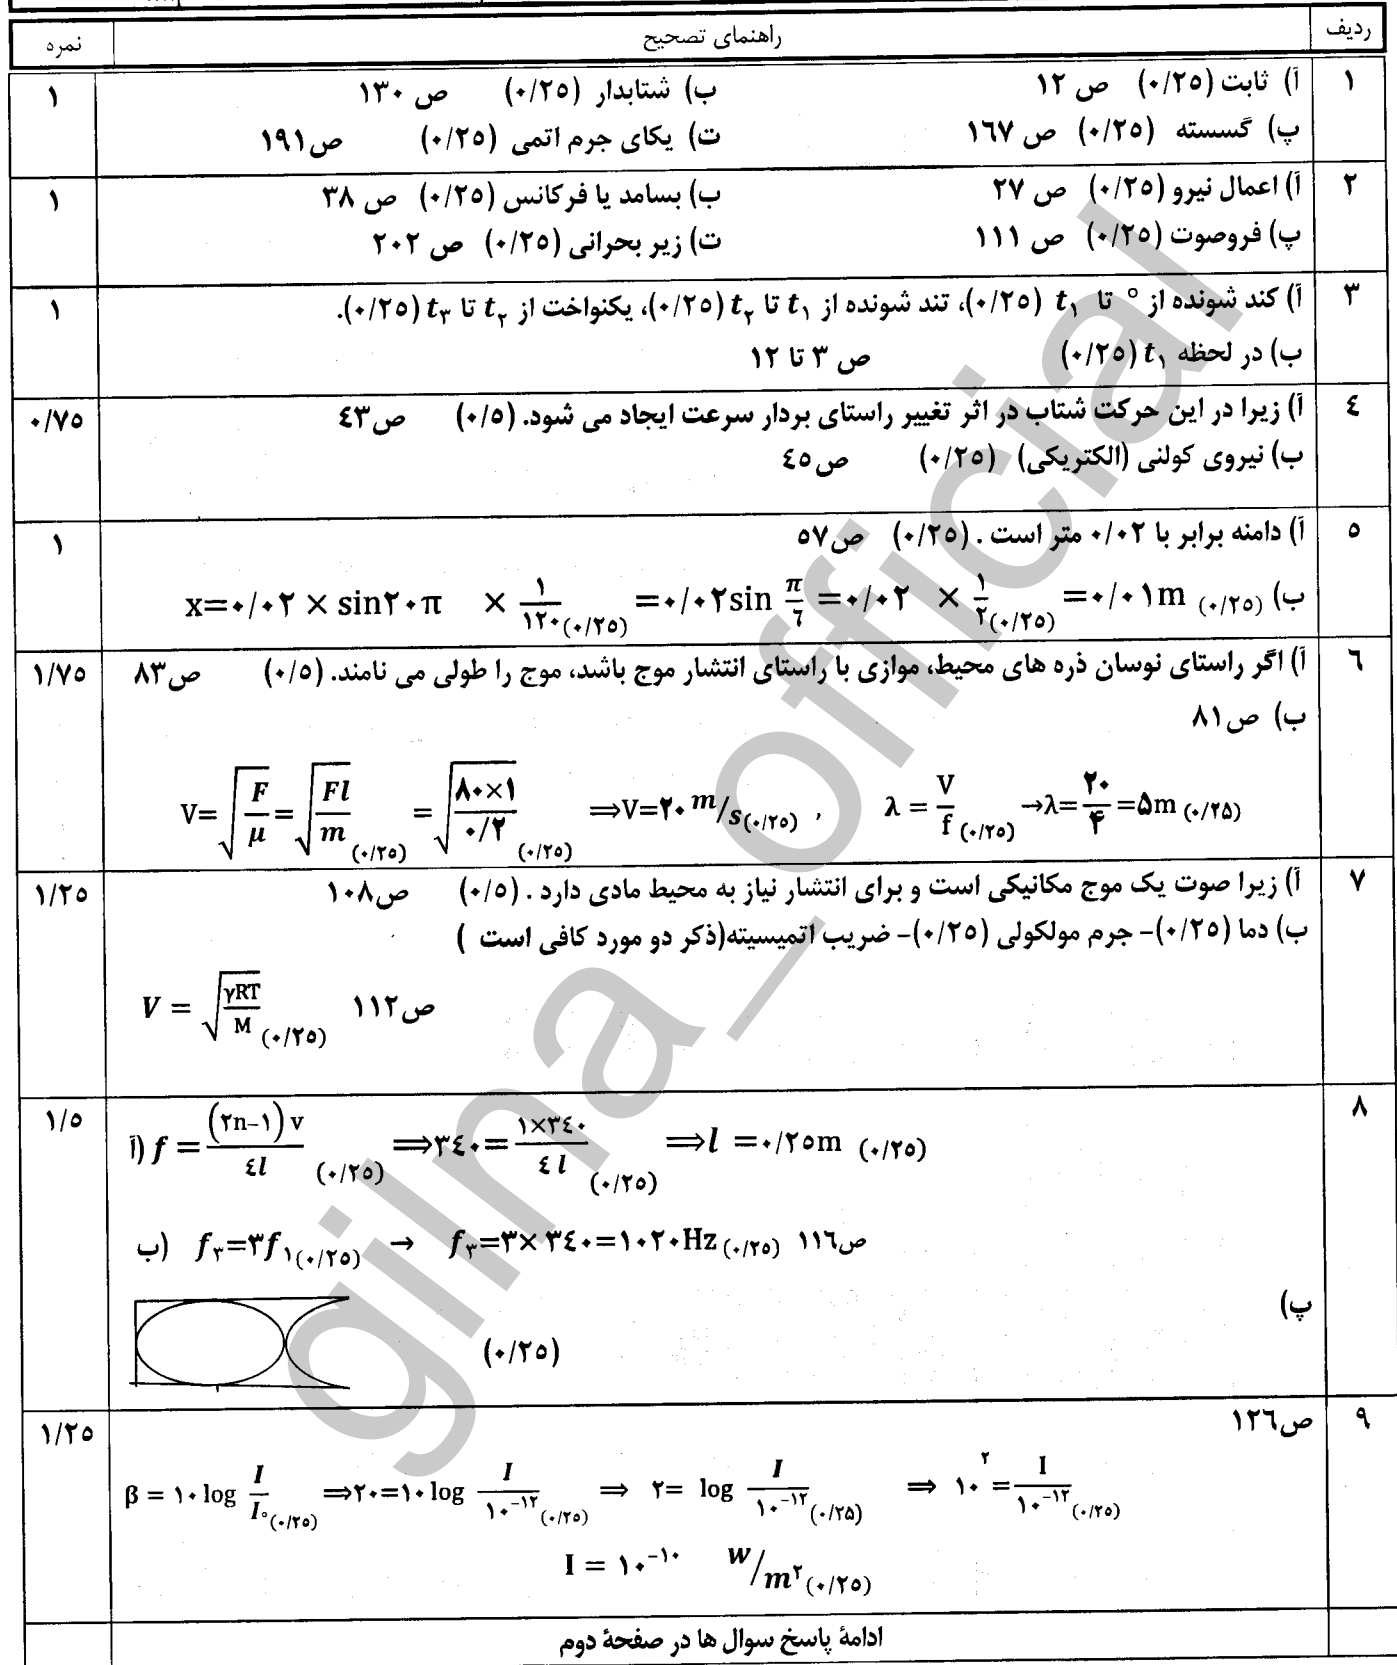 ردیف راهنمای تصحیح نمره
۱ آ) ثابت (۰/۲۵) ص ۱۲ ب) شتابدار (۰/۲۵) ص ۱۳۰ ۱
پ) گسسته (۰/۲۵) ص ۱۶۷ ت) یکای جرم اتمی (۰/۲۵) ص۱۹۱
۲ آ) اعمال نیرو (۰/۲۵) ص ۲۷ ب) بسامد یا فرکانس (۰/۲۵) ص ۳۸ ۱
پ) فروصوت (۰/۲۵) ص ۱۱۱ ت) زیر بحرانی (۰/۲۵) ص ۲۰۲
۳ آ) کند شونده از ° تا t₁ (۰/۲۵)، تند شونده از t₁ تا t₂ (۰/۲۵)، یکنواخت از t₂ تا t₃ (۰/۲۵). ۱
ب) در لحظه t₁ (۰/۲۵) ص ۳ تا ۱۲
٤ آ) زیرا در این حرکت شتاب در اثر تغییر راستای بردار سرعت ایجاد می شود. (۰/۵) ص٤۳ ۰/۷۵
ب) نیروی کولنی (الکتریکی) (۰/۲۵) ص٤۵
۵ آ) دامنه برابر با ۰/۰۲ متر است . (۰/۲۵) ص۵۷ ۱
ب) x=۰/۰۲ × sin۲۰π × ۱/۱۲۰ (۰/۲۵) =۰/۰۲sin π/۶ =۰/۰۲ × ۱/۲ (۰/۲۵) =۰/۰۱m (۰/۲۵)
۶ آ) اگر راستای نوسان ذره های محیط، موازی با راستای انتشار موج باشد، موج را طولی می نامند. (۰/۵) ص۸۳ ۱/۷۵
ب) ص۸۱
V=√(F/μ)=√(Fl/m) (۰/۲۵) =√(۸۰×۱/۰/۲) (۰/۲۵) ⟹V=۲۰ m/s (۰/۲۵) , λ = V/f (۰/۲۵) →λ=۲۰/۴=۵m (۰/۲۵)
۷ آ) زیرا صوت یک موج مکانیکی است و برای انتشار نیاز به محیط مادی دارد . (۰/۵) ص۱۰۸ ۱/۲۵
ب) دما (۰/۲۵)- جرم مولکولی (۰/۲۵)- ضریب اتمیسیته(ذکر دو مورد کافی است )
V = √(γRT/M) (۰/۲۵) ص۱۱۲
۸ آ) f = (۲n−۱) v/٤l (۰/۲۵) ⟹۳٤۰=۱×۳٤۰/٤l (۰/۲۵) ⟹l =۰/۲۵m (۰/۲۵) ۱/۵
ب) f₃=۳f₁ (۰/۲۵) → f₃=۳×۳٤۰=۱۰۲۰Hz (۰/۲۵) ص۱۱۶
پ)
(۰/۲۵)
۹ ص۱۲۶ ۱/۲۵
β = ۱۰ log I/I° (۰/۲۵) ⟹۲۰=۱۰ log I/۱۰⁻¹² (۰/۲۵) ⟹ ۲= log I/۱۰⁻¹² (۰/۲۵) ⟹ ۱۰²=I/۱۰⁻¹² (۰/۲۵)
I = ۱۰⁻¹⁰ w/m² (۰/۲۵)
ادامۀ پاسخ سوال ها در صفحۀ دوم